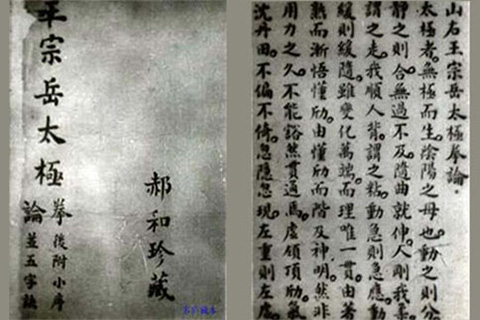 王宗岳太極
拳 後附小序
論 並五字訣
郝和珍藏
山右王宗岳太極拳論。
太極者。無極而生。陰陽之母也。動之則分
靜之則合。無過不及。隨曲就伸。人剛我柔
謂之走。我順人背。謂之粘。動急則急應。動
緩則緩隨。雖變化萬端。而理唯一貫。由著
熟而漸悟懂劤。由懂劤而階及神明。然非
用力之久。不能豁然貫通焉。虛領頂劤。氣
沈丹田。不偏不倚。忽隱忽現。左重則左虛